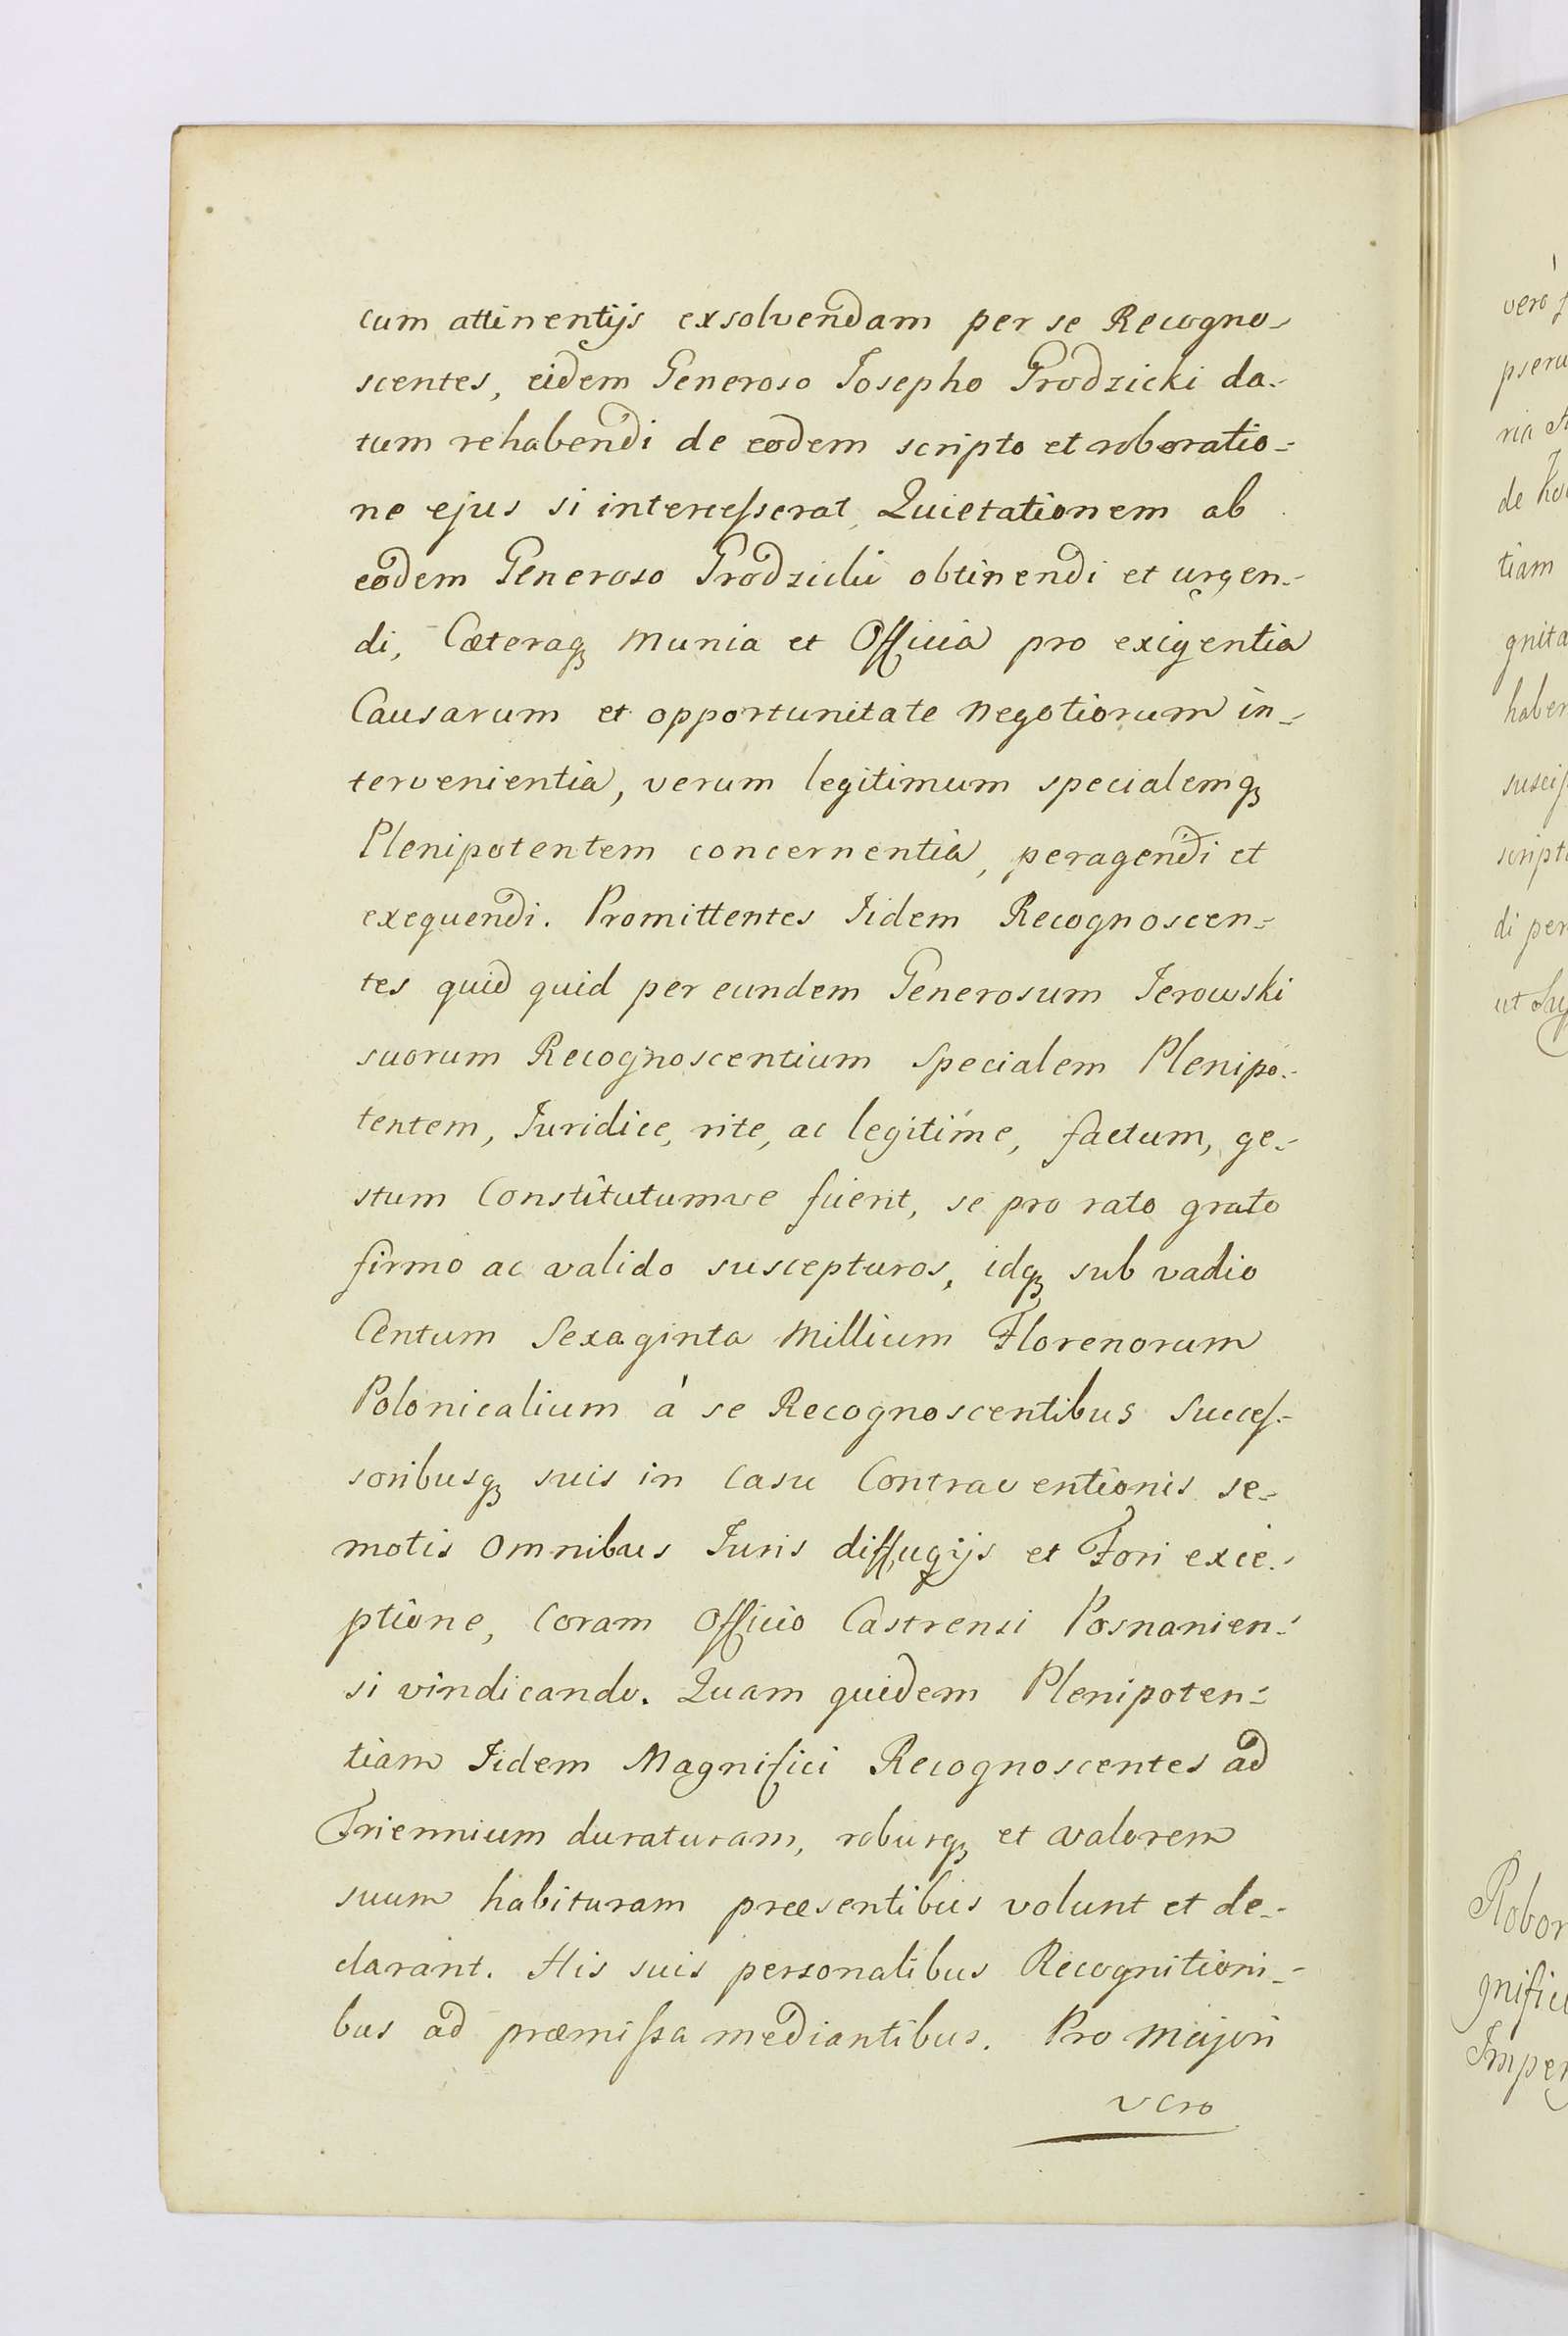 cum attinentijs exsolvendam per se Recogno-
scentes, eidem Generoso Josepho Grodzicki da-
tum rehabendi de eodem scripto et roboratio-
ne ejus si intercesserat, Quietationem ab
eodem Generoso Grodzicki obtinendi et urgen-
di, Cæteraq3 Munia et Officia pro exigentia
Causarum et opportunitate Negotiorum in-
tervenientia, verum legitimum specialemq3
Plenipotentem concernentia, peragendi et
exequendi. Promittentes Iidem Recognoscen-
tes quid quid per eundem Generosum Jerowski
suorum Recognoscentium Specialem Plenipo-
tentem, Juridice, rite, ac legitime, factum, ge-
stum Constitutumve fuerit, se pro rato grato
firmo ac valido suscepturos, idq3 sub vadio
Centum Sexaginta Millium Florenorum
Polonicalium á se Recognoscentibus Succes-
soribusq3 suis in Casu Contraventionis se-
motis omnibus Juris diffugijs et Fori exce-
ptione, Coram Officio Castrensi Posnanien-
si vindicando. Quam quidem Plenipoten-
tiam Iidem Magnifici Recognoscentes ad
Triennium duraturam, roburq3 et valorem
suum habituram præsentibus volunt et de-
clarant. His suis personalibus Recognitioni-
bus ad præmissa mediantibus. Pro Majori
vero
verò
pseru
ria
de
tiam
gnita
haben
suscis
scripto
di per
ut
Robor
gnific
Imper